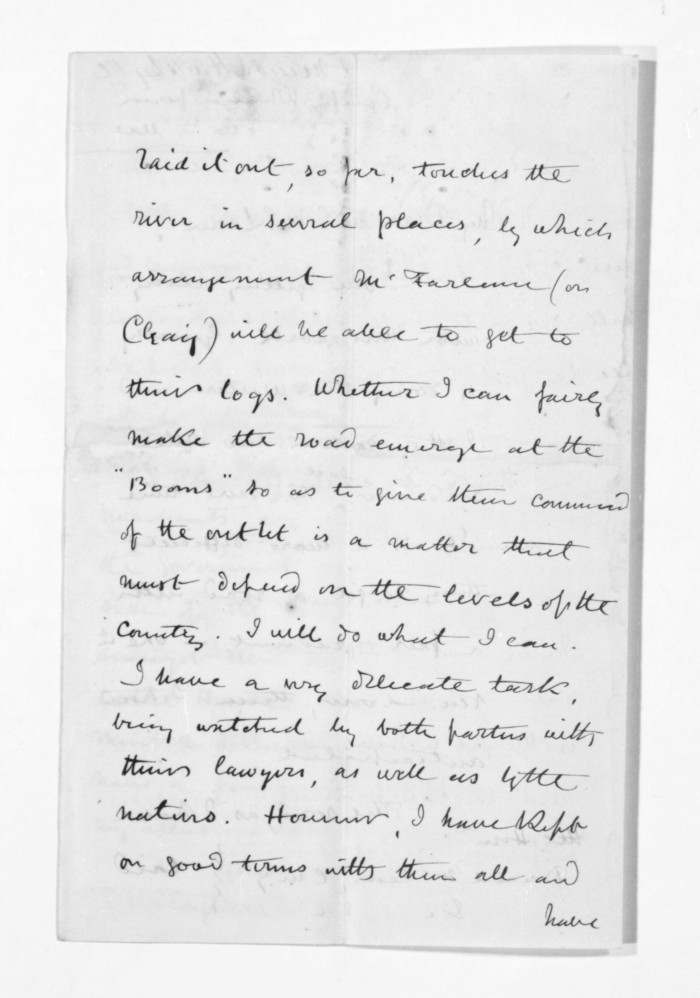 laid it out, so far, touches the
river in several places, by which
arrangement McFarlane (or
Craig) will be able to get to
their logs. Whether I can fairly
make the road emerge at the
"Booms" so as to give them command
of the outlet is a matter that
must depend on the levels of the
country. I will do what I can.
I have a very delicate task,
being watched by both parties with
their lawyers, as well as by the
natives. However, I have kept
on good terms with them all and
have